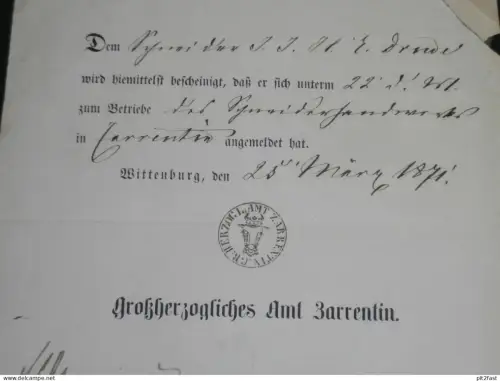 Dem Schneider J. J. H. E. Drude
wird hiemittelst bescheinigt, daß er sich unterm 22 d. Mt.
zum Betriebe des Schneiderhandwerks
in Zarrentin angemeldet hat.
Wittenburg, den 25 März 1871.
GR. HERZOGL. AMT ZARRENTIN
Großherzogliches Amt Zarrentin.
www.delcampe.net
pit2fast